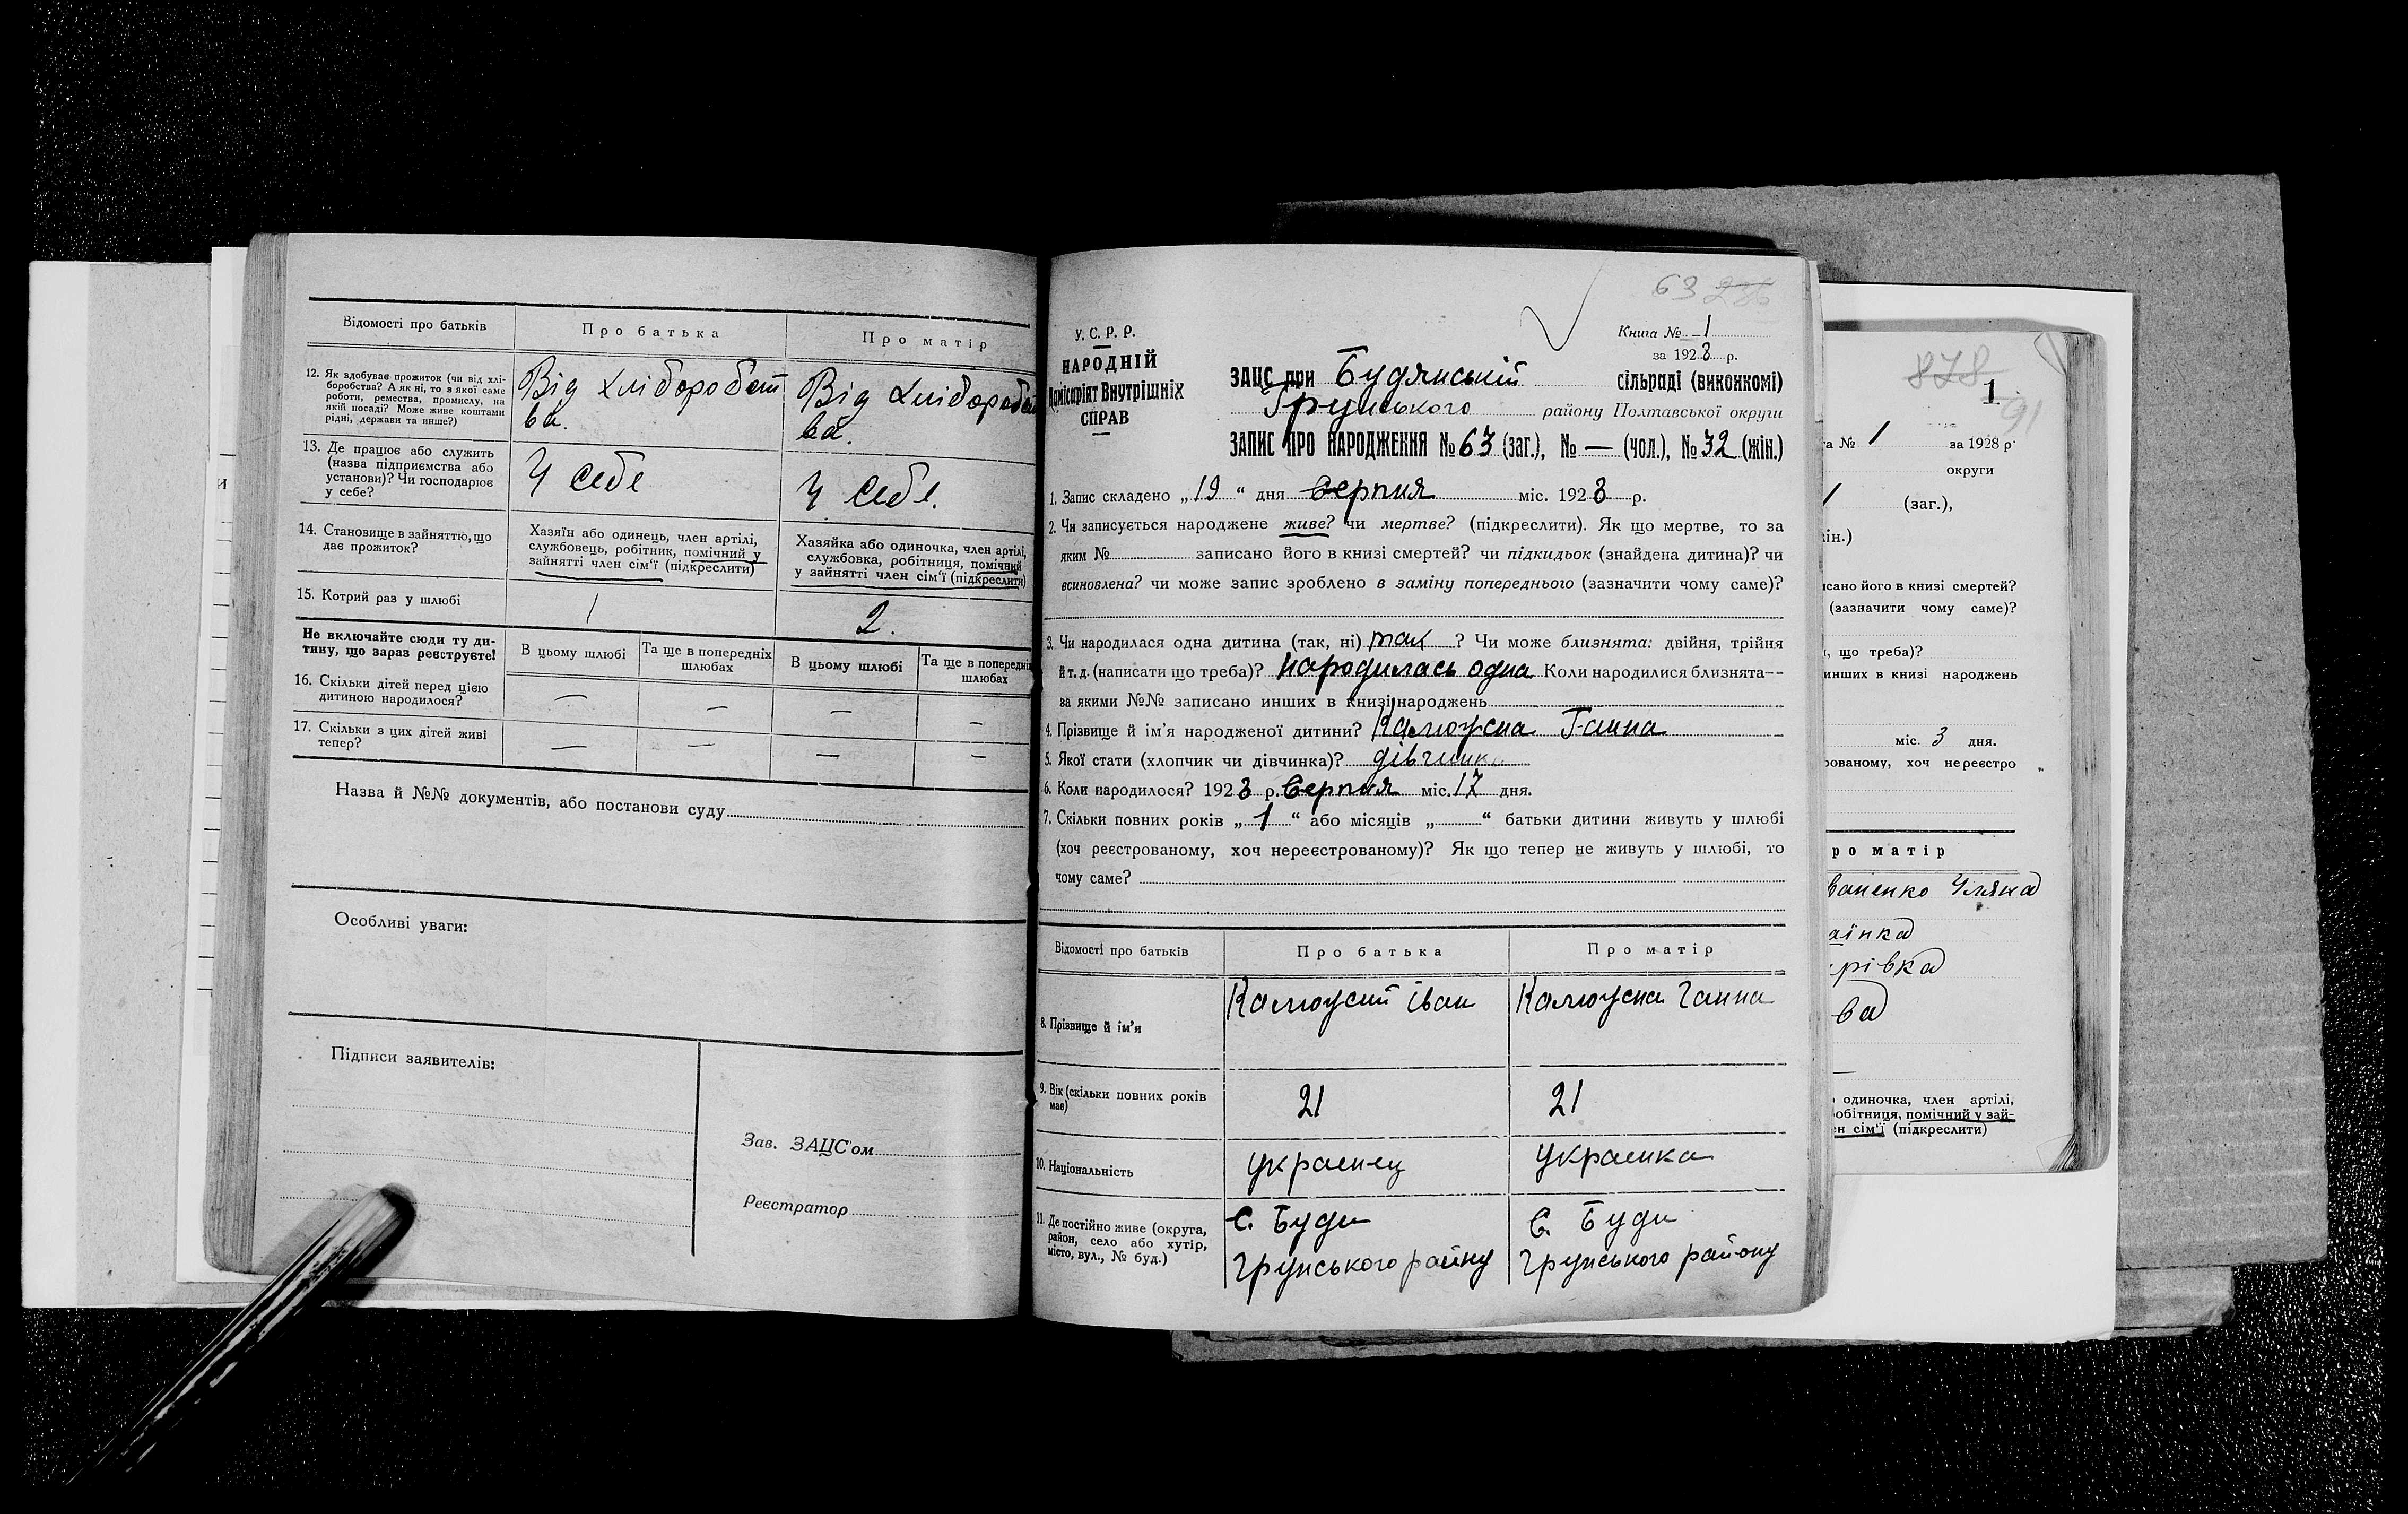 Відомості про батьків
Про батька
Про матір
12. Як здобуває прожиток (чи від хлі-
боробства? А як ні, то з якої саме
роботи, ремества, промислу, на
якій посаді? Може живе коштами
рідні, держави та инше?)
Від хліборобст
ва.
Від хліборобст
ва.
13. Де працює або служить
(назва підприємства або
установи)? Чи господарює
у себе?
У себе
У себе.
14. Становище в зайняттю, що
дає прожиток?
Хазяїн або одинець, член артілі,
службовець, робітник, помічний у
зайнятті член сім'ї (підкреслити)
Хазяйка або одиночка, член артілі,
службовка, робітниця, помічний
у зайнятті член сім'ї (підкреслити)
15. Котрий раз у шлюбі
1
2.
Не включайте сюди ту ди-
тину, що зараз реєструєте!
В цьому шлюбі
Та ще в попередніх
шлюбах
В цьому шлюбі
Та ще в попередніх
шлюбах
16. Скільки дітей перед цією
дитиною народилося?
— — — —
17. Скільки з цих дітей живі
тепер?
— — — —
Назва й №№ документів, або постанови суду
Особливі уваги:
Підписи заявителів:
Зав. ЗАЦС'ом
Реєстратор
63 286
У. С. Р. Р.
НАРОДНІЙ
Комісаріят Внутрішніх
СПРАВ
Книга № 1
за 1928 р.
ЗАЦС при Будянській сільраді (виконкомі)
Грунського району Полтавської округи
ЗАПИС ПРО НАРОДЖЕННЯ № 63 (заг.), № — (чол.), № 32 (жін.)
1. Запис складено „19“ дня Серпня міс. 1928 р.
2. Чи записується народжене живе? чи мертве? (підкреслити). Як що мертве, то за
яким № записано його в книзі смертей? чи підкидьок (знайдена дитина)? чи
всиновлена? чи може запис зроблено в заміну попереднього (зазначити чому саме)?
3. Чи народилася одна дитина (так, ні) так ? Чи може близнята: двійня, трійня
й т. д. (написати що треба)? народилась одна Коли народилися близнята—
за якими №№ записано инших в книзі народжень
4. Прізвище й ім'я народженої дитини? Калюжна Ганна
5. Якої стати (хлопчик чи дівчинка)? дівчинка
6. Коли народилося? 1928 р. Серпня міс. 17 дня.
7. Скільки повних років „1“ або місяців „ “ батьки дитини живуть у шлюбі
(хоч реєстрованому, хоч нереєстрованому)? Як що тепер не живуть у шлюбі, то
чому саме?
Відомості про батьків
Про батька
Про матір
8. Прізвище й ім'я
Калюжний Іван
Калюжна Ганна
9. Вік (скільки повних років
має)
21
21
10. Національність
Украинец
Украинка
11. Де постійно живе (округа,
район, село або хутір,
місто, вул., № буд.)
С. Буди
Грунського району
С. Буди
Грунського району
878
1
91
№ 1 за 1928 р.
округи
(заг.),
ін.)
исано його в книзі смертей?
(зазначити чому саме)?
, що треба)?
инших в книзі народжень
міс. 3 дня.
рованому, хоч нереєстро
ро матір
ваненко Уляна
аїнка
рівка
ва
—
одиночка, член артілі,
обітниця, помічний у зай-
ен сім'ї (підкреслити)